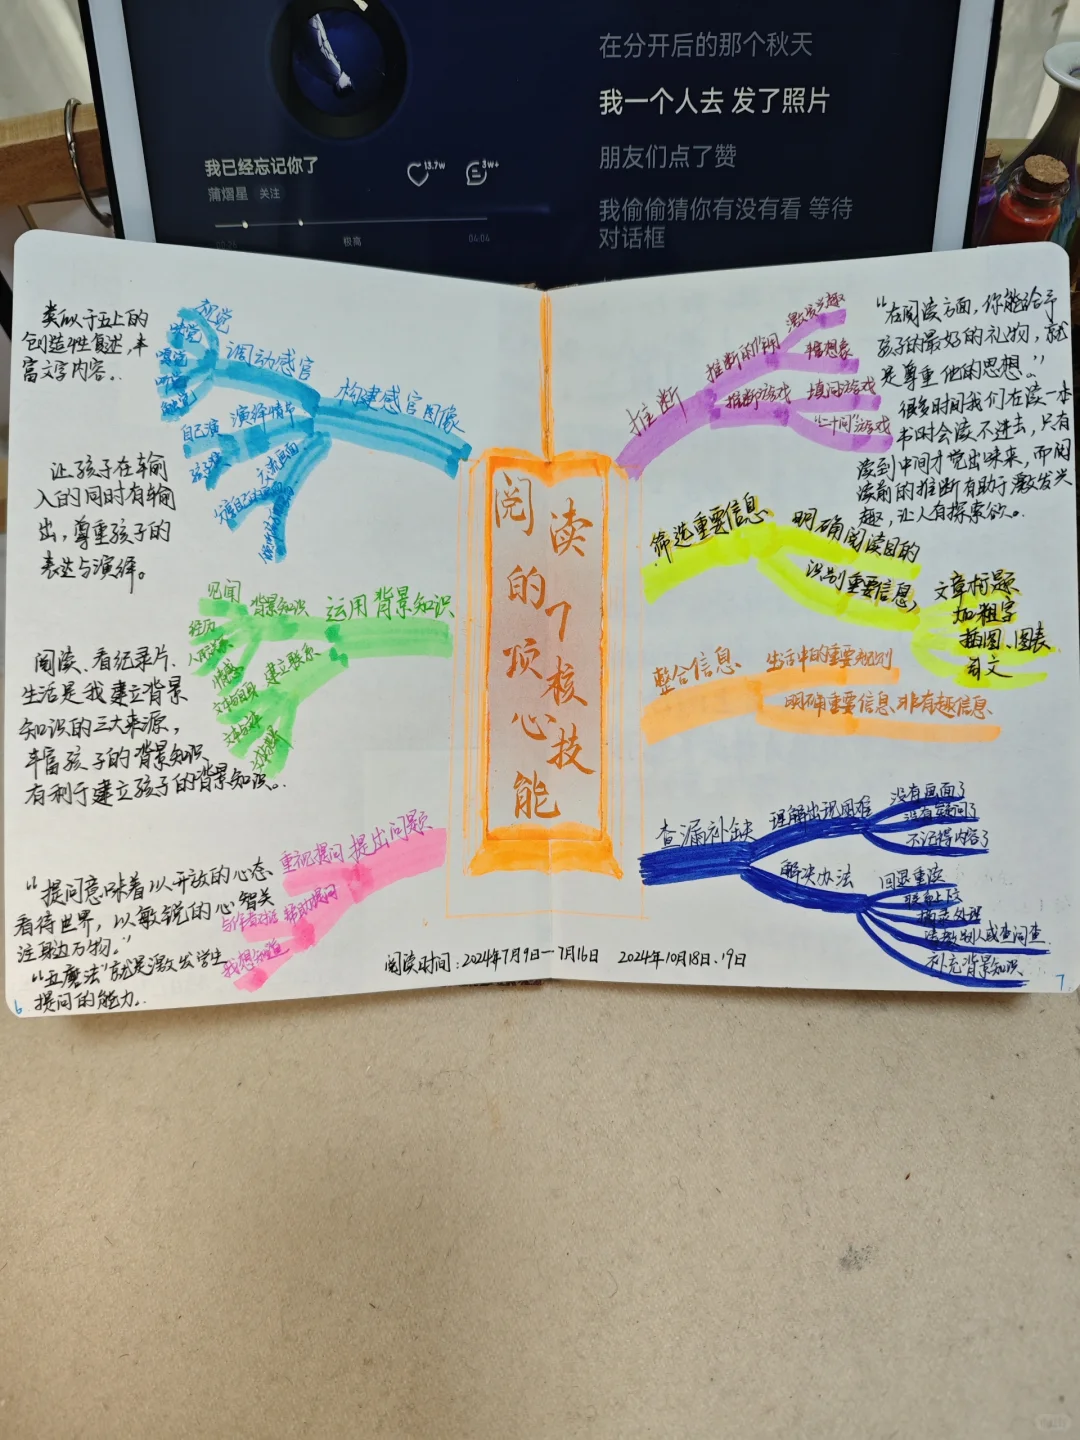 在分开后的那个秋天
我一个人去 发了照片
朋友们点了赞
我偷偷猜你有没有看 等待
对话框
我已经忘记你了
蒲熠星 关注
13.7w
3w+
极高
04:04
类似于五上的
创造性复述,丰
富文字内容。
让孩子在输
入的同时有输
出,尊重孩子的
表达与演绎。
阅读、看纪录片、
生活是我建立背景
知识的三大来源,
丰富孩子的背景知识,
有利于建立孩子的背景知识。
“提问意味着以开放的心态
看待世界,以敏锐的心智关
注身边万物。”
“五魔法”就是激发学生
提问的能力。
6
构建感官图像
调动感官
视觉
听觉
嗅觉
味觉
触觉
演绎情节
自己演
运用背景知识
背景知识
见闻
经历
人际关系
情感
建立联系
提出问题
重视提问
帮助提问
与作者对话
我想知道
阅读的7项核心技能
阅读时间:2024年7月9日—7月16日 2024年10月18日、19日
推断
推断的作用
激发兴趣
丰富想象
推断游戏
填词游戏
“二十问”游戏
“在阅读方面,你能给予
孩子的最好的礼物,就
是尊重他的思想。”
很多时间我们在读一本
书时会读不进去,只有
读到中间才觉出味来,而阅
读前的推断有助于激发兴
趣,让人有探索欲。
筛选重要信息
明确阅读目的
识别重要信息
文章标题
加粗字
插图、图表
首文
整合信息
生活中的重要规则
明确重要信息非有趣信息
查漏补缺
理解出现困难
没有画面了
没有疑问了
不记得内容了
解决办法
回退重读
联系上下文
请教别人或查问查
补充背景知识
7